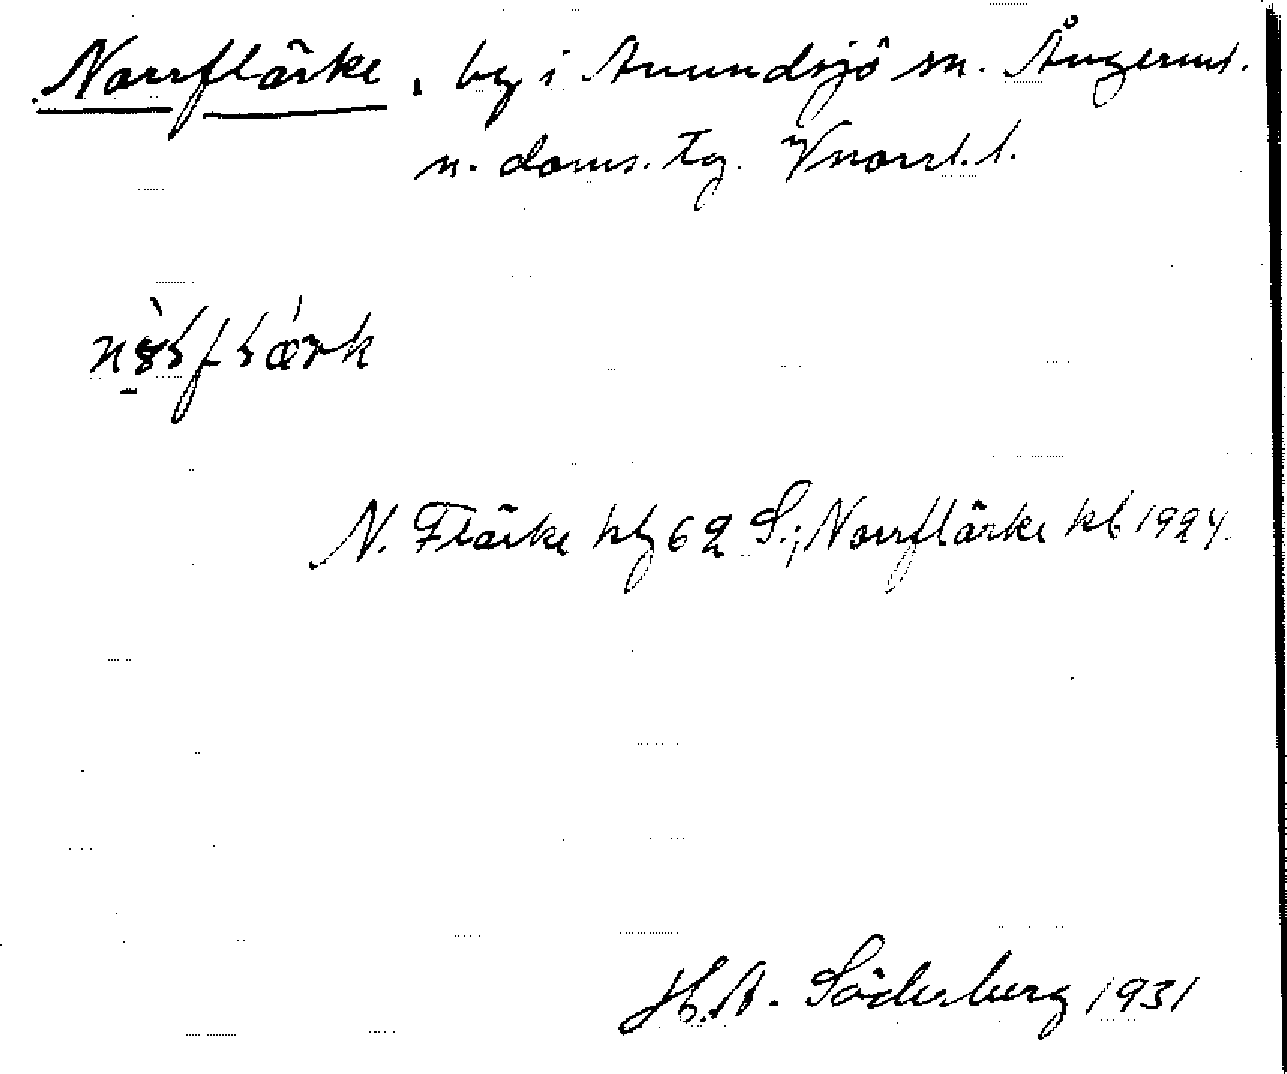 Norrflärke, by i Anundsjö sn. Ångerml.
n. doms. tg. Vnorrl. l.
N. Flärke hfl 62 S.; Norrflärke kb 1924.
H.A. Söderberg 1931